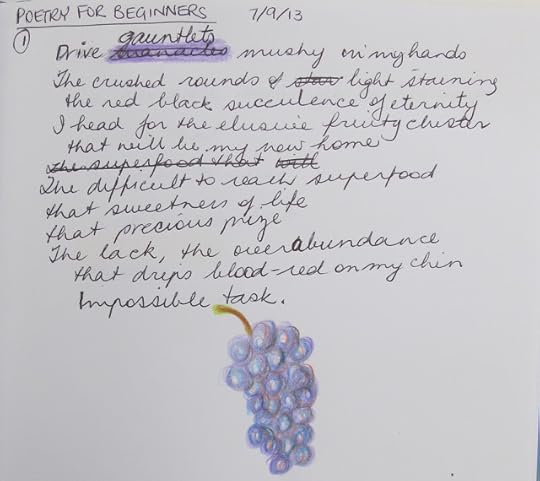 POETRY FOR BEGINNERS 7/9/13
① gauntlets
Drive manacles mushy on my hands
The crushed rounds of star light staining
the red black succulence of eternity
I head for the elusive fruity cluster
that will be my new home
the superfood that will
The difficult to reach superfood
that sweetness of life
that precious prize
The lack, the overabundance
that drips blood-red on my chin
Impossible task.